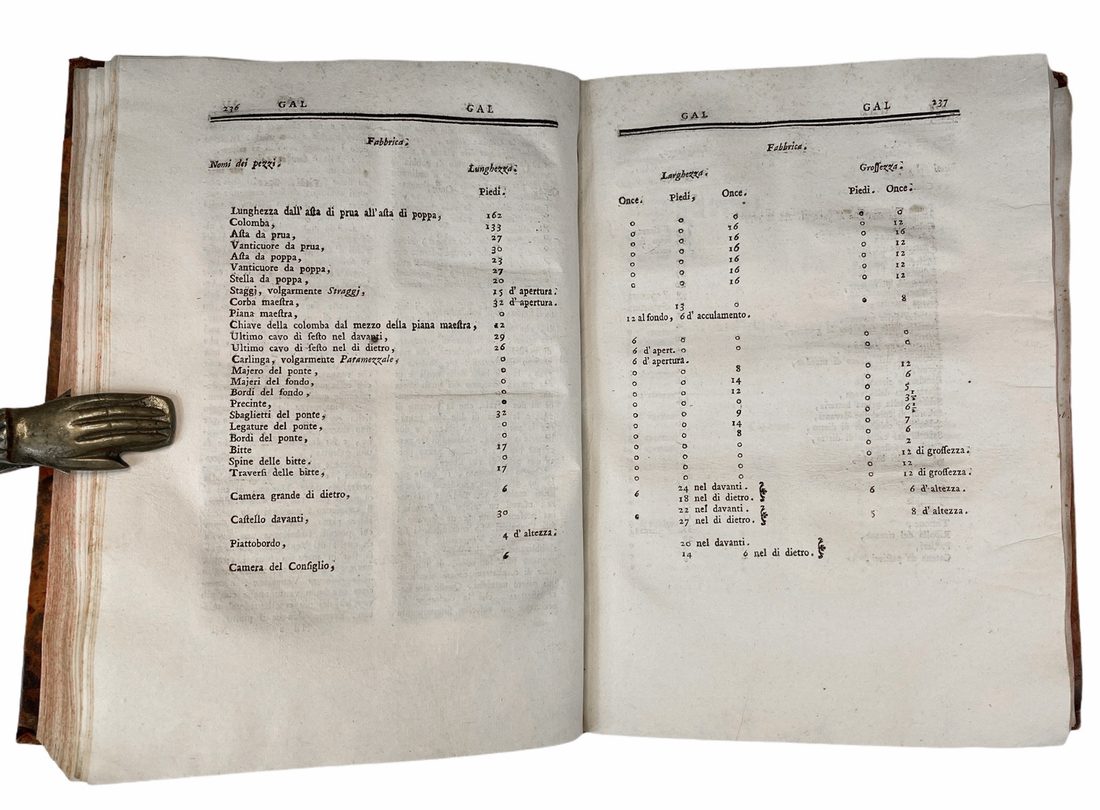 236 GAL GAL
Fabbrica.
Nomi dei pezzi. Lunghezza.
Piedi.
Lunghezza dall' aſta di prua all'aſta di poppa, 162
Colomba, 133
Aſta da prua, 27
Vanticuore da prua, 30
Aſta da poppa, 23
Vanticuore da poppa, 27
Stella da poppa, 20
Staggi, volgarmente Straggi, 15 d' apertura.
Corba maeſtra, 32 d' apertura.
Piana maeſtra, 0
Chiave della colomba dal mezzo della piana maeſtra, 12
Ultimo cavo di ſeſto nel davanti, 29
Ultimo cavo di ſeſto nel di dietro, 26
Carlinga, volgarmente Paramezzale, 0
Majero del ponte, 0
Majeri del fondo, 0
Bordi del fondo, 0
Precinte, 0
Sbaglietti del ponte, 32
Legature del ponte, 0
Bordi del ponte, 0
Bitte 17
Spine delle bitte. 0
Traverſi delle bitte, 17
Camera grande di dietro, 6
Caſtello davanti, 30
Piattobordo, 4 d' altezza.
Camera del Conſiglio, 6
GAL GAL 237
Fabbrica.
Larghezza. Groſſezza.
Once. Piedi, Once. Piedi. Once.
0 0 0 0 0
0 0 16 0 12
0 0 16 0 16
0 0 16 0 12
0 0 16 0 12
0 0 16 0 12
0 0 16 0 12
13 0 0 8
12 al fondo, 6 d' acculamento.
6 0 0 0
6 d' apert. 0 0 0
6 d' apertura.
0 0 8 0 12
0 0 14 0 6
0 0 12 0 5
0 0 0 0 3½
0 0 9 0 6½
0 0 14 0 7
0 0 8 0 6
0 0 0 0 2
0 0 0 0 12 di groſſezza.
0 0 0 0 12
0 0 0 0 12 di groſſezza.
24 nel davanti.
6 18 nel di dietro. 6 6 d' altezza.
22 nel davanti.
6 27 nel di dietro. 5 8 d' altezza.
20 nel davanti.
14 6 nel di dietro.